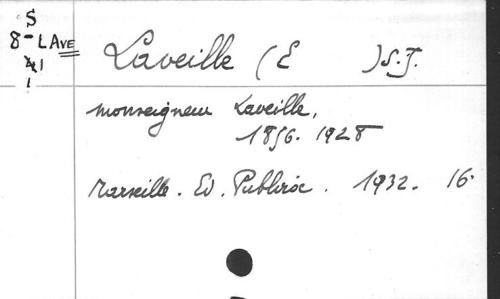 S
8- LAVE
41
1
Laveille (E )S.J.
Monseigneur Laveille,
1856-1928
Marseille. Ed. Publiroc. 1932. 16-